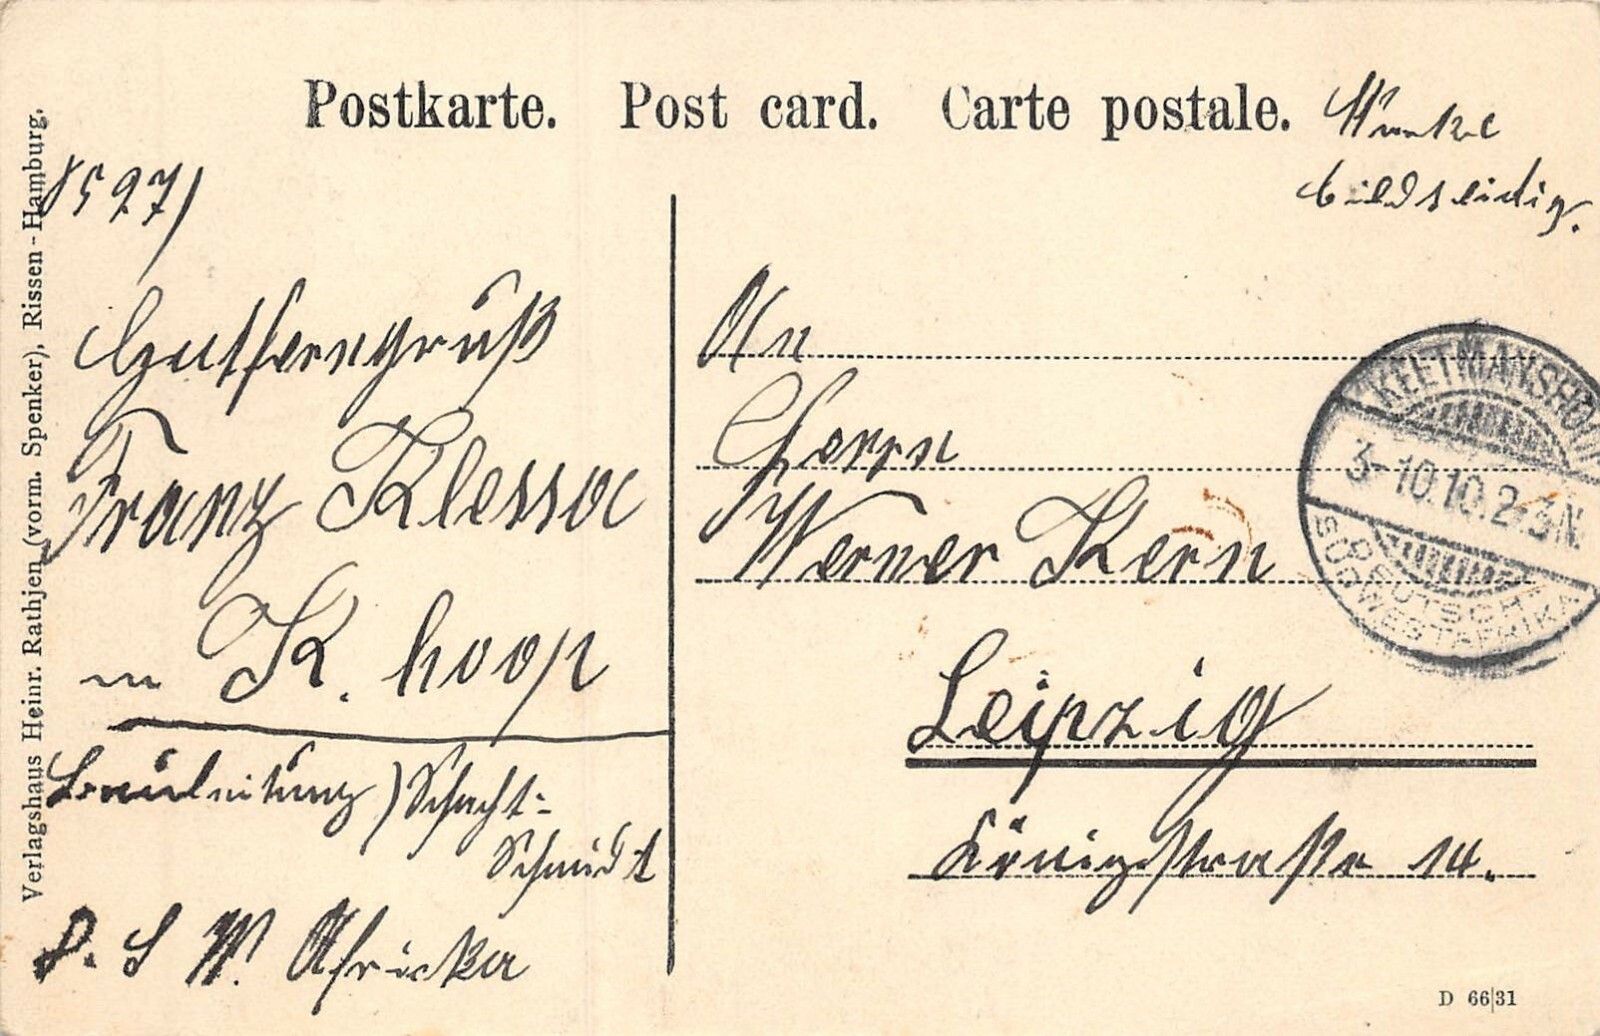 Postkarte. Post card. Carte postale.
Marke
bildseitig.
8597)
Gutferngruß
Franz Klessa
in K. hoop
Bauleitung) Schacht-
Schmidt
D. S W. Africka
An
Herrn
Werner Kern
Leipzig
Königsstraße 14.
KEETMANSHOOP
3-10.10.2-3N.
DEUTSCH-
SÜDWESTAFRIKA
Verlagshaus Heinr. Rathjen (vorm. Spenker), Rissen-Hamburg.
D 66|31